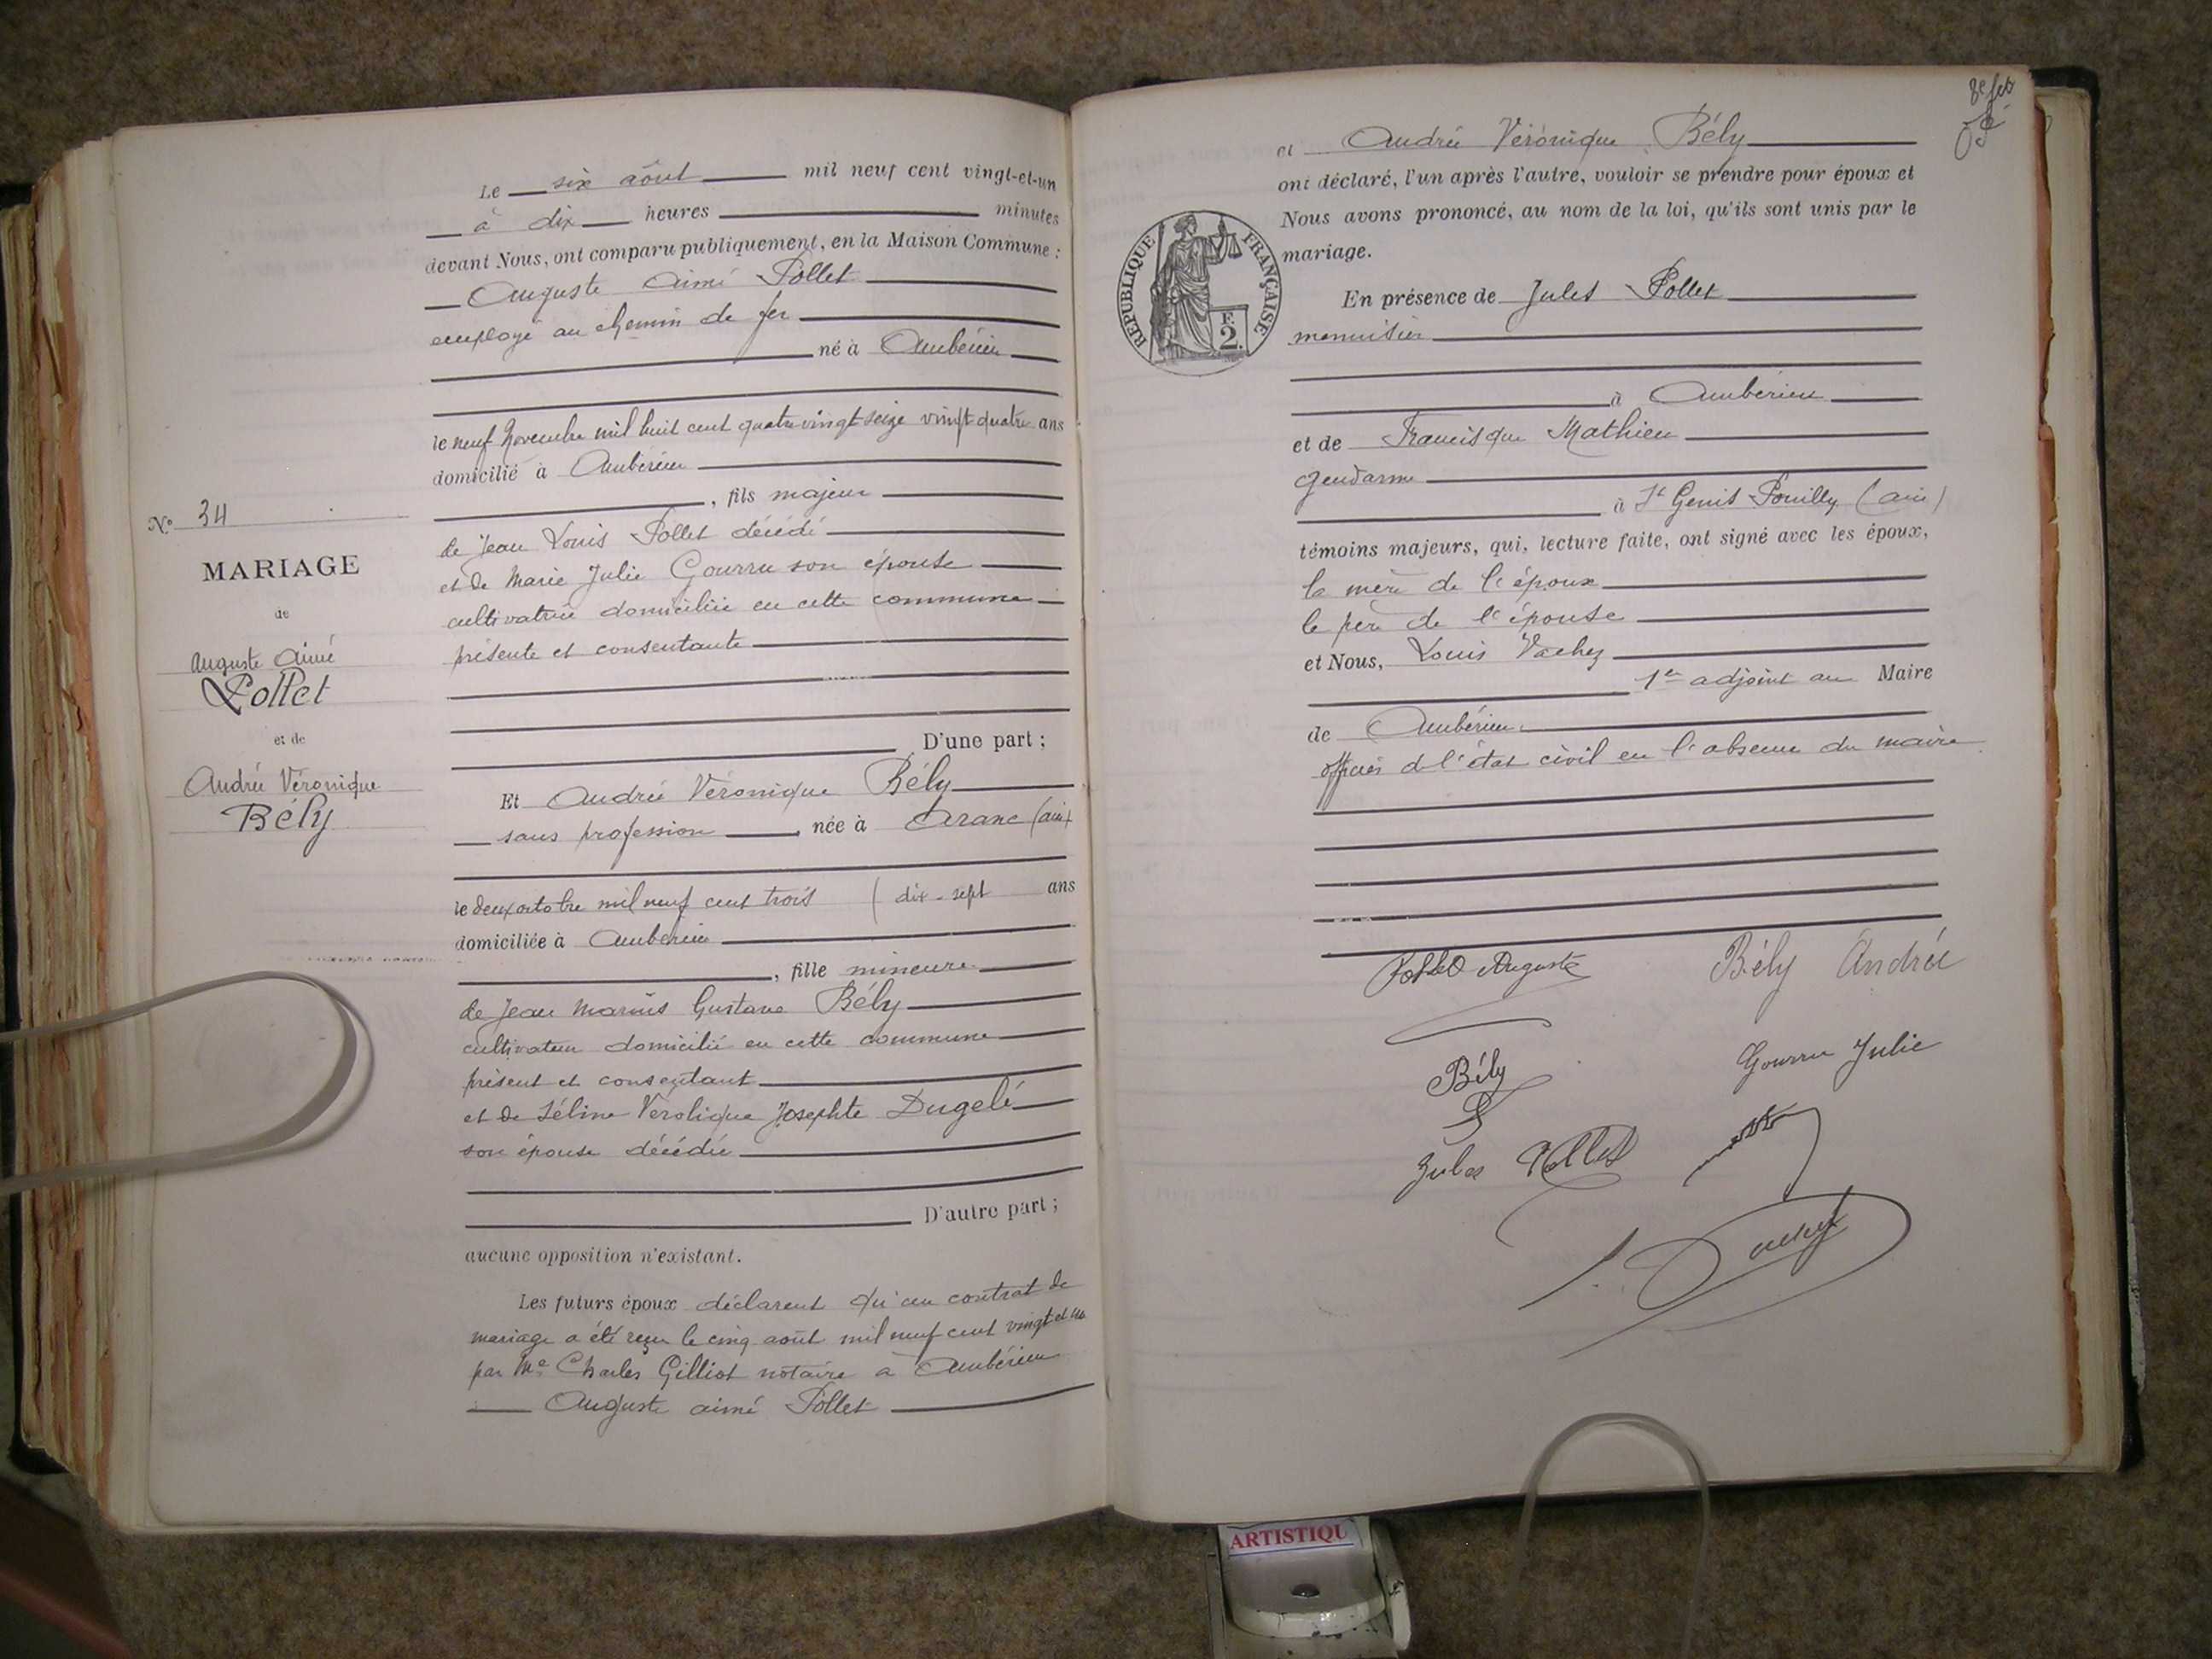 Le six août mil neuf cent vingt-et-un
à dix heures minutes
devant Nous, ont comparu publiquement, en la Maison Commune :
Auguste Aimé Pollet
employé au chemin de fer
né à Ambérieu
le neuf Novembre mil huit cent quatre vingt seize vingt quatre ans
domicilié à Ambérieu
, fils majeur
de Jean Louis Pollet décédé
et de Marie Julie Gourru son épouse
cultivatrice domiciliée en cette commune
présente et consentante
D'une part ;
Et Andrée Véronique Bély
sans profession, née à Aranc (ain)
le deux octobre mil neuf cent trois ( dix-sept ans
domiciliée à Ambérieu
, fille mineure
de Jean Marius Gustave Bély
cultivateur domicilié en cette commune
présent et consentant
et de Séline Véronique Josephte Dugelé
son épouse décédée
D'autre part ;
aucune opposition n'existant.
Les futurs époux déclarent qu'un contrat de
mariage a été reçu le cinq août mil neuf cent vingt et un
par Me Charles Gilliot notaire à Ambérieu
Auguste aimé Pollet
No 34
MARIAGE
de
Auguste Aimé
Pollet
et de
Andrée Véronique
Bély
et Andrée Véronique Bély
ont déclaré, l'un après l'autre, vouloir se prendre pour époux et
Nous avons prononcé, au nom de la loi, qu'ils sont unis par le
mariage.
REPUBLIQUE FRANÇAISE
F.
2.
En présence de Jules Pollet
menuisier
à Ambérieu
et de Francisque Mathieu
gendarme
à St Genis Pouilly (ain)
témoins majeurs, qui, lecture faite, ont signé avec les époux,
la mère de l'époux
le père de l'épouse
et Nous, Louis Vachez
1er adjoint au Maire
de Ambérieu
officier de l'état civil en l'absence du maire
Pollet Auguste
Bély Andrée
Bély
Gourru Julie
Jules Pollet
ARTISTIQU